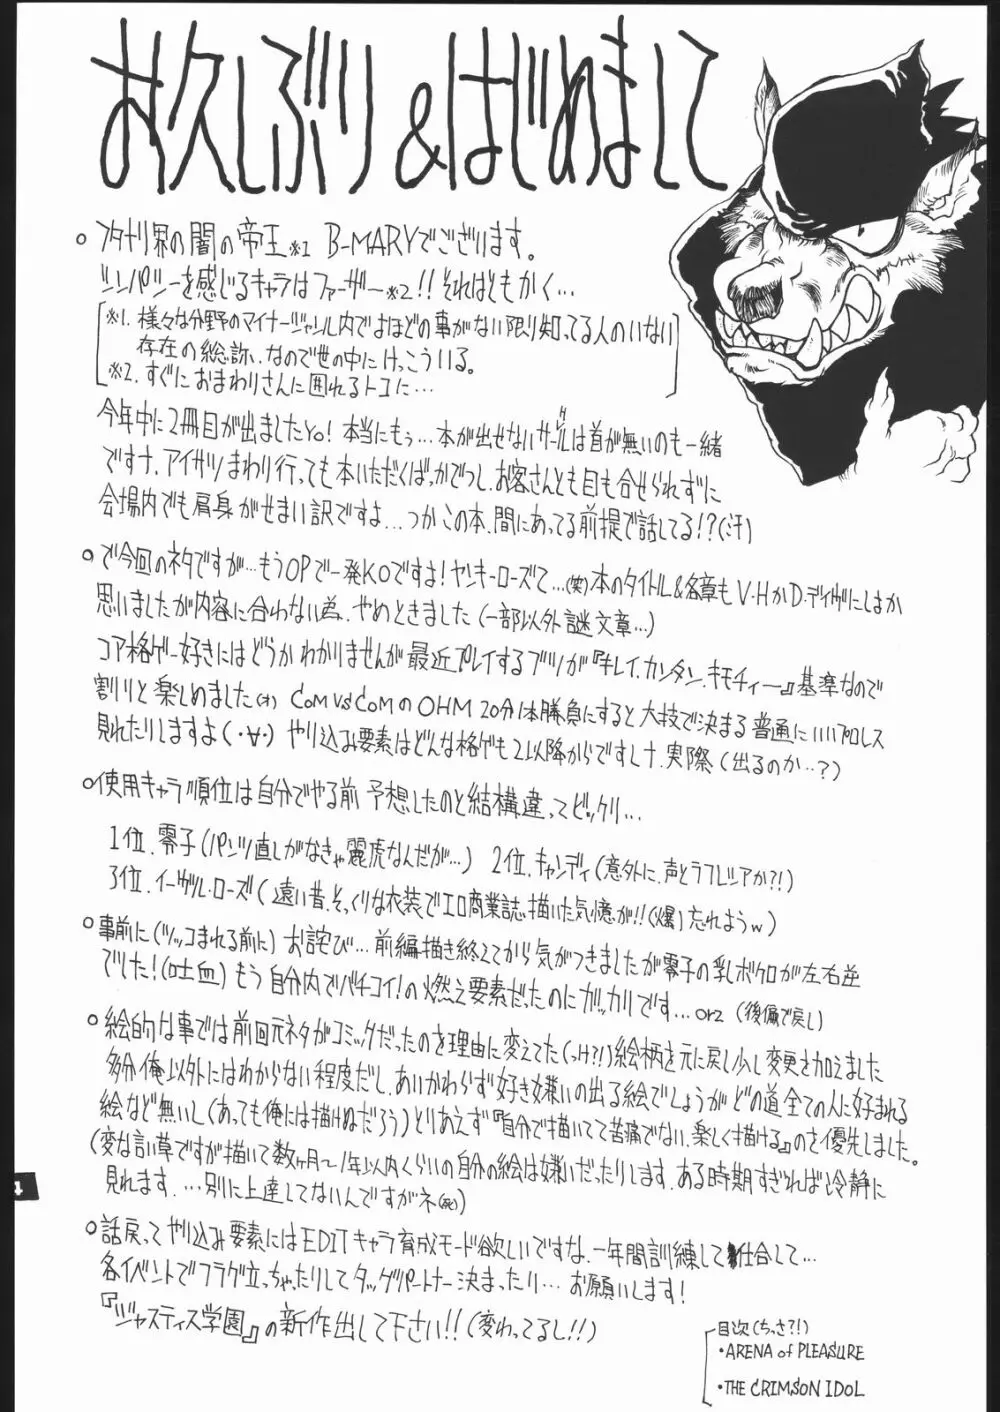 お久しぶり&はじめまして
○フタナリ界の闇の帝王※1 B-MARYでございます。
シンパシーを感じるキャラはファーザー※2!!それはともかく…
※1.様々な分野のマイナージャンル内でよほどの事がない限り知ってる人のいない
存在の総称、なので世の中にけっこういる。
※2.すぐにおまわりさんに囲れるトコに…
今年中に2冊目が出ましたYO!本当にもぅ…本が出せないサークルは首が無いのも一緒
ですナ.アイサツまわり行っても本いただくばっかでつし.お客さんとも目も合せられずに
会場内でも肩身がせまい訳ですよ…つかこの本、間にあってる前提で話してる!?(汗)
○で今回のネタですが…もうOPで一発KOですよ!ヤンキーローズて…(笑)本のタイトル&各章もV・HかD・デイヴにしよか
思いましたが内容に合わない為、やめときました(一部以外謎文章…)
コア格ゲー好きにはどうかわかりませんが最近プレイするブツが『キレイ.カンタン.キモチィー』基準なので
割りと楽しめました(オ) COM VS COMのOHM 20分1本勝負にすると大技で決まる普通にいいプロレス
見れたりしますよ(・∀・) やり込み要素はどんな格ゲも2以降からですしナ.実際(出るのか…?)
○使用キャラ順位は自分でやる前予想したのと結構違ってビックリ…
1位.零子(パンツ直しがなきゃ麗虎なんだが…) 2位.キャンディ(意外に、声とラフレシアか?!)
3位.イーヴル・ローズ(遠い昔.そっくりな衣装でエロ商業誌描いた気憶が!!(爆)忘れようw)
○事前に(ツッコまれる前に)お詫び…前編描き終えてから気がつきましたが零子の乳ボクロが左右逆
でした!(吐血)もう自分内でバチコイ!の燃え要素だったのにガッカリです…orz (後編で戻し)
○絵的な事では前回元ネタがコミックだったのを理由に変えてた(っけ?!)絵柄を元に戻し少し変更を加えました
多分俺以外にはわからない程度だし.あいかわらず好き嫌いの出る絵でしょうがどの道全ての人に好まれる
絵など無いし(あっても俺には描けぬだろう)とりあえず『自分で描いてて苦痛でない.楽しく描ける』のを優先しました。
(変な言い草ですが描いて数ヶ月〜1年以内くらいの自分の絵は嫌いだったりします.ある時期すぎれば冷静に
見れます.…別に上達してないんですがネ(死))
○話戻ってやり込み要素にはEDITキャラ育成モード欲しいですな.一年間訓練して仕合して…
各イベントでフラグ立っちゃったりしてタッグパートナー決まったり…お願いします!
『ジャスティス学園』の新作出して下さい!!(変わってるし!!)
目次(ちっさ?!)
・ARENA of PLEASURE
・THE CRIMSON IDOL
4